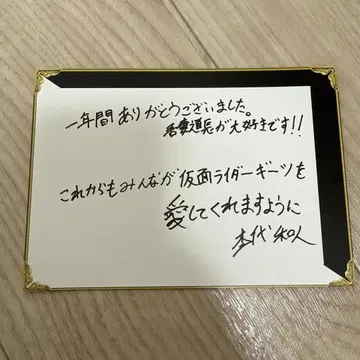 一年間ありがとうございました。
吾妻道長が大好きです!!
これからもみんなが仮面ライダーギーツを
愛してくれますように
杢代和人